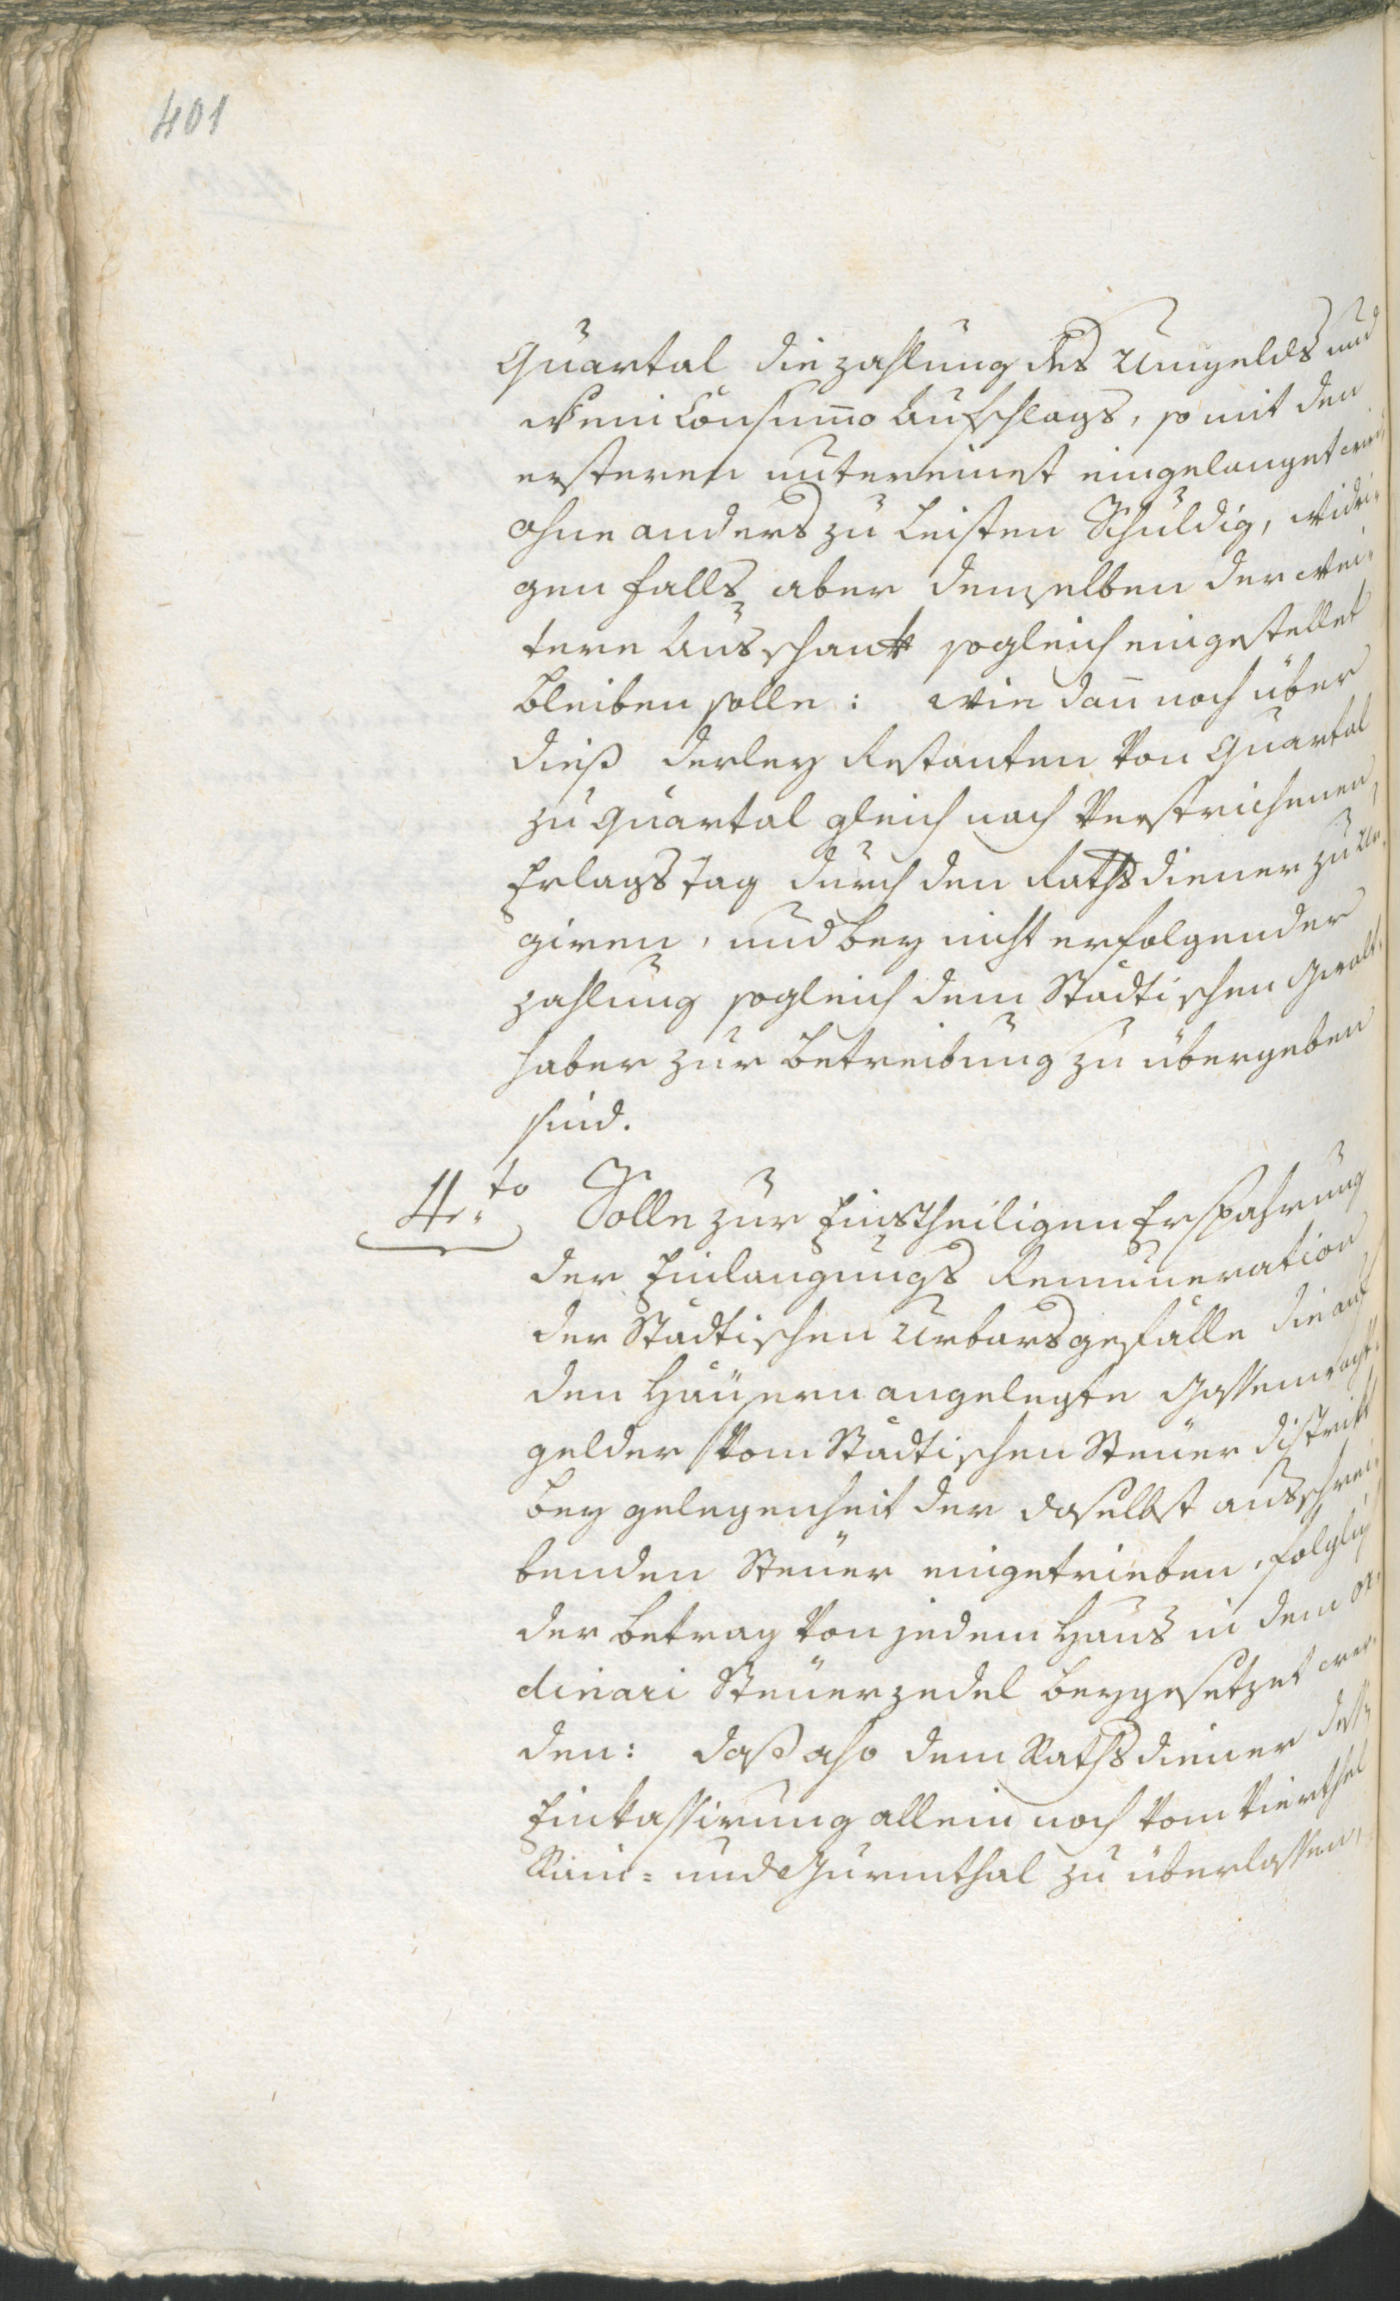 401
Quartal die zahlung des Umgelds und
Wein Consumo Aufschlags, so mit den
ersteren untereinst eingelanget
ohne anders zu leisten Schuldig, widri-
gen falls aber demselben der wei-
tere Ausschank sogleich eingestellet
bleiben solle: wie dan̄ noch über
dieß derley Restanten von Quartal
zu Quartal gleich nach Verstrichenen
Erlags Tag durch den Rathsdiener zu Ur-
giren, und bey nicht erfolgender
zahlung sogleich dem Städtischen Gewalt-
haber zur betreibung zu übergeben
sind.
4.to Solle zur Einstheiligen Ersparung
der Einlangungs Remuneration
der Städtischen Urbarsgefälle die auf
den Häüsern angelegte Gassenwacht-
gelder vom Städtischen Steuer District
bey gelegenheit der daselbst ausschrei-
benden Steuer eingetrieben, folglich
der betrag von jedem Haus in dem or-
dinari Steuerzedel beygesetzet wer-
den: daß also dem Rathsdiener
Einkassirung allein noch vom Vierthel
Rain= und zu überlassen,